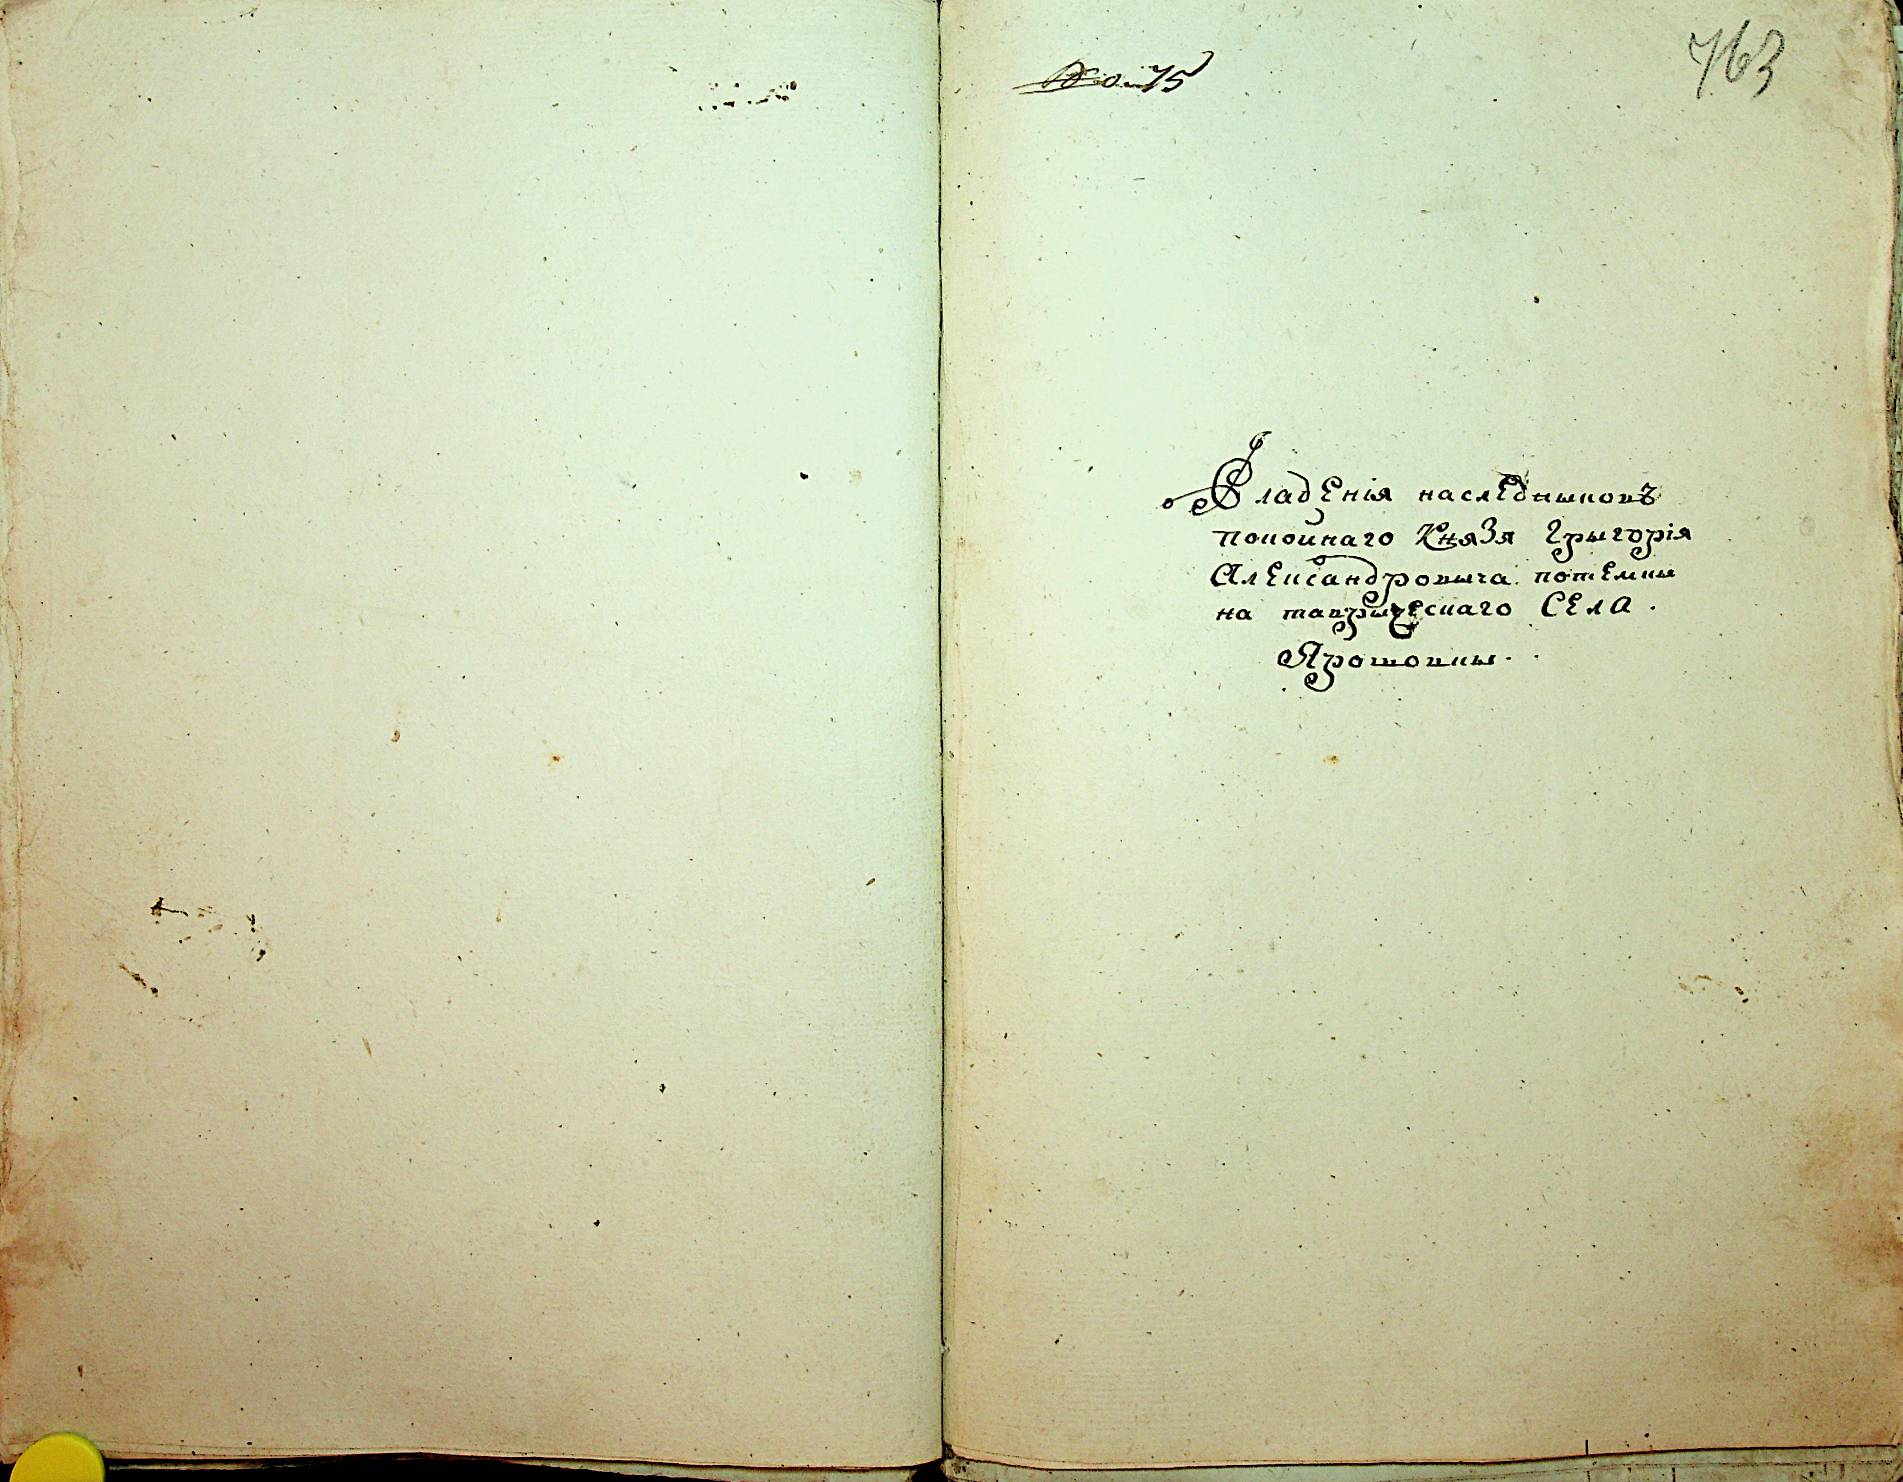 No 75
763
Владенія наследныковъ
покойнаго Князя Грыгорія
Александровыча потемкы
на таврыческаго Села.
Ярошовкы.